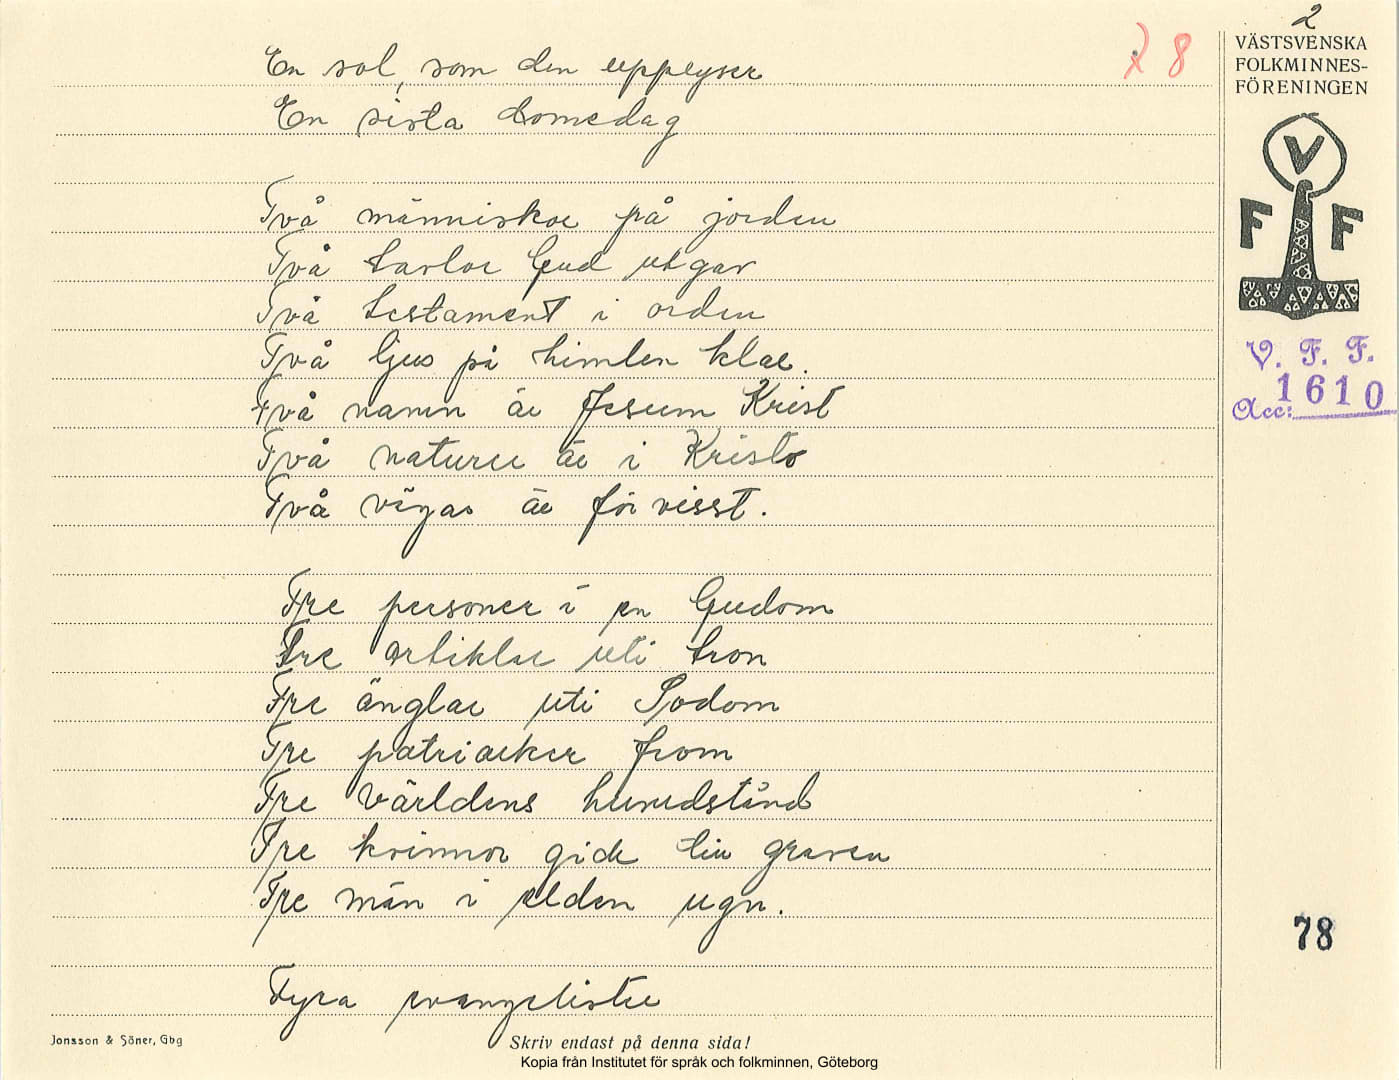 2
VÄSTSVENSKA
FOLKMINNES-
FÖRENINGEN
V
F F
V. F. F.
Acc: 1610
78
8
En sol, som den upplyser
En sista domedag
Två människor på jorden
Två tavlor Gud utgav
Två testament i orden
Två ljus på himlen klar.
Två namn är Jesum Krist
Två naturer är i Kristo
Två vägar är för visst.
Tre personer i en Gudom
Tre artiklar uti tron
Tre änglar uti Sodom
Tre patriarker from
Tre världens huvudstånd
Tre kvinnor gick till graven
Tre män i elden ugn.
Fyra evangelister
Jonsson & Söner, Gbg
Skriv endast på denna sida!
Kopia från Institutet för språk och folkminnen, Göteborg